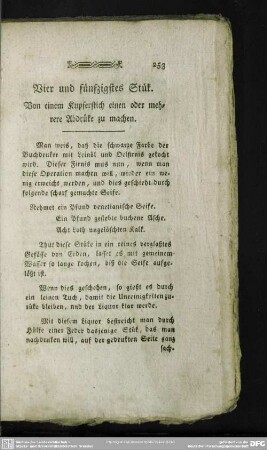 253
Vier und fünfzigstes Stük.
Von einem Kupferstich einen oder meh-
rere Abdrüke zu machen.
Man weis, daß die schwarze Farbe der
Buchdruker mit Leinöl und Oelfirnis gekocht
wird. Dieser Firnis mus nun, wenn man
diese Operation machen will, wieder ein we-
nig erweicht werden, und dies geschiehet durch
folgende scharf gemachte Seife.
Nehmet ein Pfund venetianische Seife.
Ein Pfund gesiebte buchene Asche.
Acht Loth ungelöschten Kalk.
Thut diese Stüke in ein reines verglastes
Gefässe von Erden, lasset es mit gemeinem
Wasser so lange kochen, biß die Seife aufge-
läßt ist.
Wenn dies geschehen, so gießt es durch
ein leinen Tuch, damit die Unreinigkeiten zu-
rüke bleiben, und der Liquor klar werde.
Mit diesem Liquor bestreicht man durch
Hülfe einer Feder dasjenige Stük, das man
nachdruken will, auf der gedrukten Seite ganz
sach.